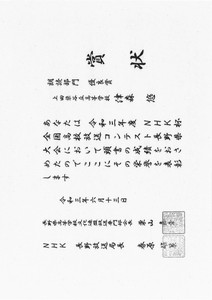 賞状
朗読部門 優良賞
上田染谷丘高等学校 津森 悠
あなたは 令和三年度 NHK杯
全国高校放送コンテスト長野県
大会において頭書の成績をおさ
めたのでここにその栄誉を表彰
します
令和三年六月十三日
長野県高等学校文化連盟放送専門部会長 東山
NHK 長野放送局長 春原